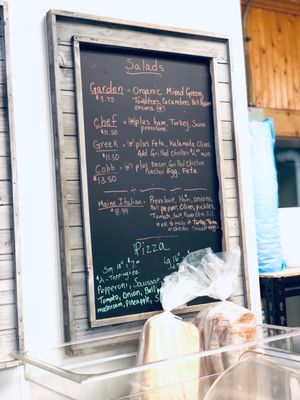 Salads
Garden = Organic Mixed Greens
$8.75 Tomatoes, Cucumbers, Bell Pepper
onions. (*)
Chef = (*) plus ham, Turkey, Swiss
$11.50 provolone.
Greek = (*) plus Feta, Kalamata Olives
$11.50 Add Grilled Chicken $2.00 more.
Cobb = (*) plus bacon Grilled Chicken
$13.50 Poached Egg, Feta.
Maine Italian = Provolone, Ham, onions,
$8.99 Bell pepper, Olives, pickles,
Tomato, Salt, Olive Oil
make it Turkey, Tuna
or chicken Salad
Pizza
Sm 10" = $7 Lg 16"
Toppings
Pepperoni, Sausage
Tomato, Onion, Bell
mushroom, Pineapple,